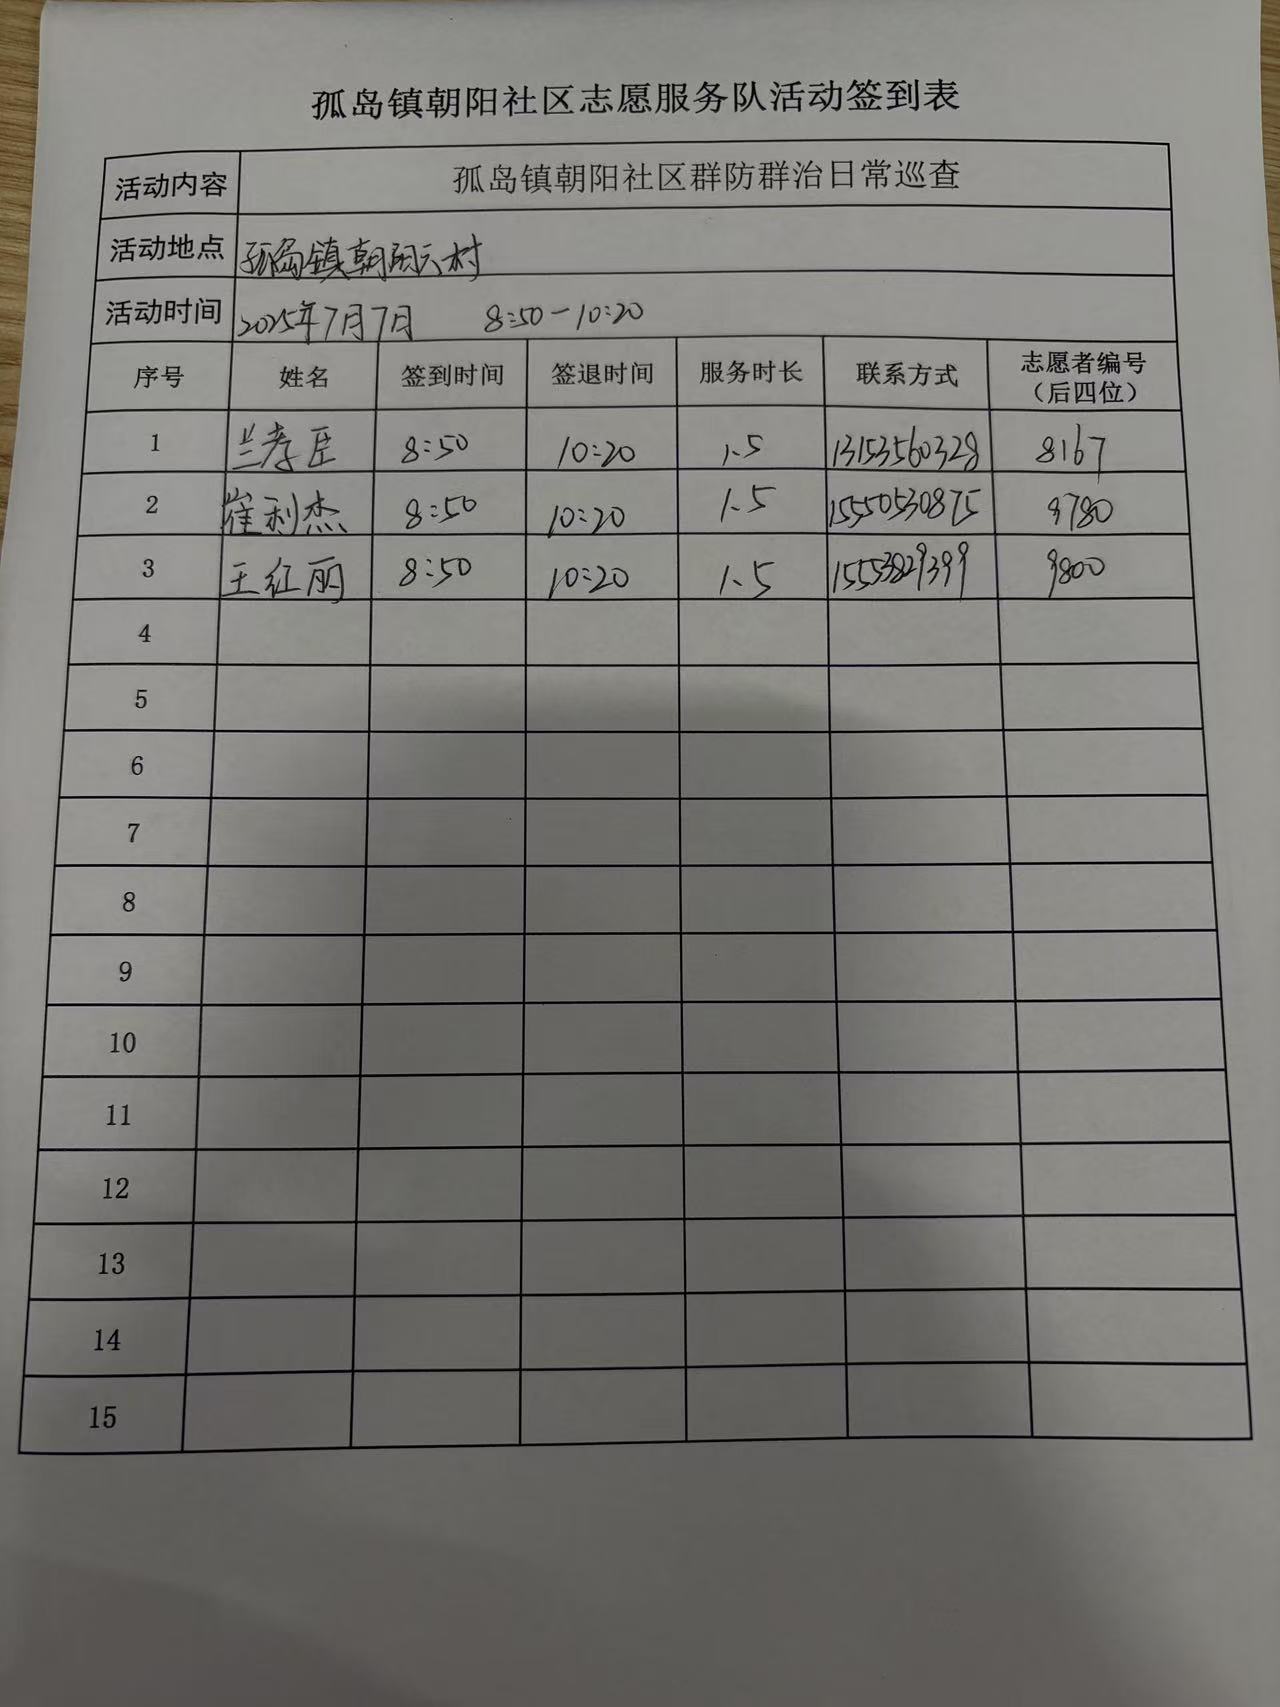 孤岛镇朝阳社区志愿服务队活动签到表
活动内容 孤岛镇朝阳社区群防群治日常巡查
活动地点 孤岛镇朝阳六村
活动时间 2025年7月7日 8:50-10:20
序号 姓名 签到时间 签退时间 服务时长 联系方式 志愿者编号（后四位）
1 兰孝臣 8:50 10:20 1.5 13153560328 8167
2 崔利杰 8:50 10:20 1.5 15550530875 9780
3 王红丽 8:50 10:20 1.5 15553829399 9800
4
5
6
7
8
9
10
11
12
13
14
15